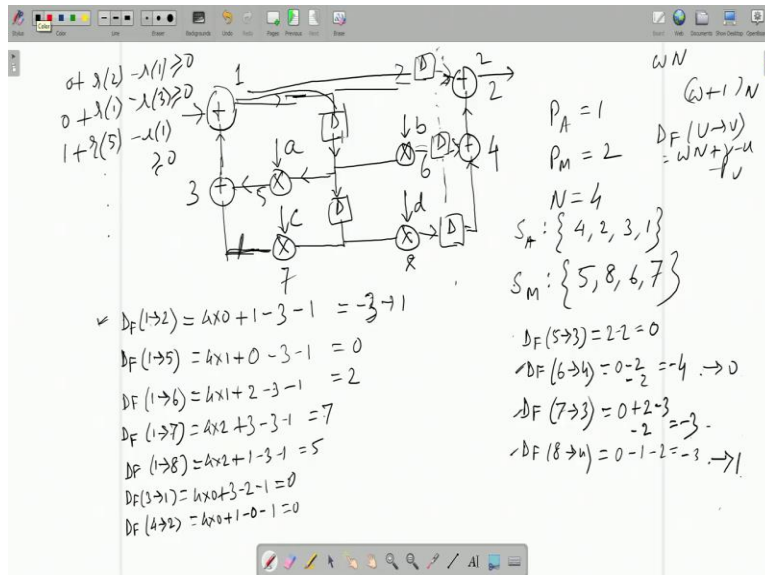 Stylus
Color
Color
Line
Eraser
Backgrounds
Undo
Redo
Pages
Previous
Next
Erase
Board
Web
Documents
Show Desktop
OpenBoard
0 + r(2) - r(1) ≥ 0
0 + r(1) - r(3) ≥ 0
1 + r(5) - r(1) ≥ 0
1
D
2
2
+
+
D
a
b
D
+
4
3
+
5
X
X
6
c
D
d
D
X
X
7
8
ωN
(ω+1)N
D_F(U→V)
= ωN + γ - u
- P_u
P_A = 1
P_M = 2
N = 4
S_A : {4, 2, 3, 1}
S_M : {5, 8, 6, 7}
✓ D_F(1→2) = 4x0 + 1 - 3 - 1 = -3 → 1
D_F(1→5) = 4x1 + 0 - 3 - 1 = 0
D_F(1→6) = 4x1 + 2 - 3 - 1 = 2
D_F(1→7) = 4x2 + 3 - 3 - 1 = 7
D_F(1→8) = 4x2 + 1 - 3 - 1 = 5
D_F(3→1) = 4x0 + 3 - 2 - 1 = 0
D_F(4→2) = 4x0 + 1 - 0 - 1 = 0
D_F(5→3) = 2 - 2 = 0
✓ D_F(6→4) = 0 - 2 - 2 = -4 .→ 0
✓ D_F(7→3) = 0 + 2 - 3 - 2 = -3 .
✓ D_F(8→4) = 0 - 1 - 2 = -3 .→ 1